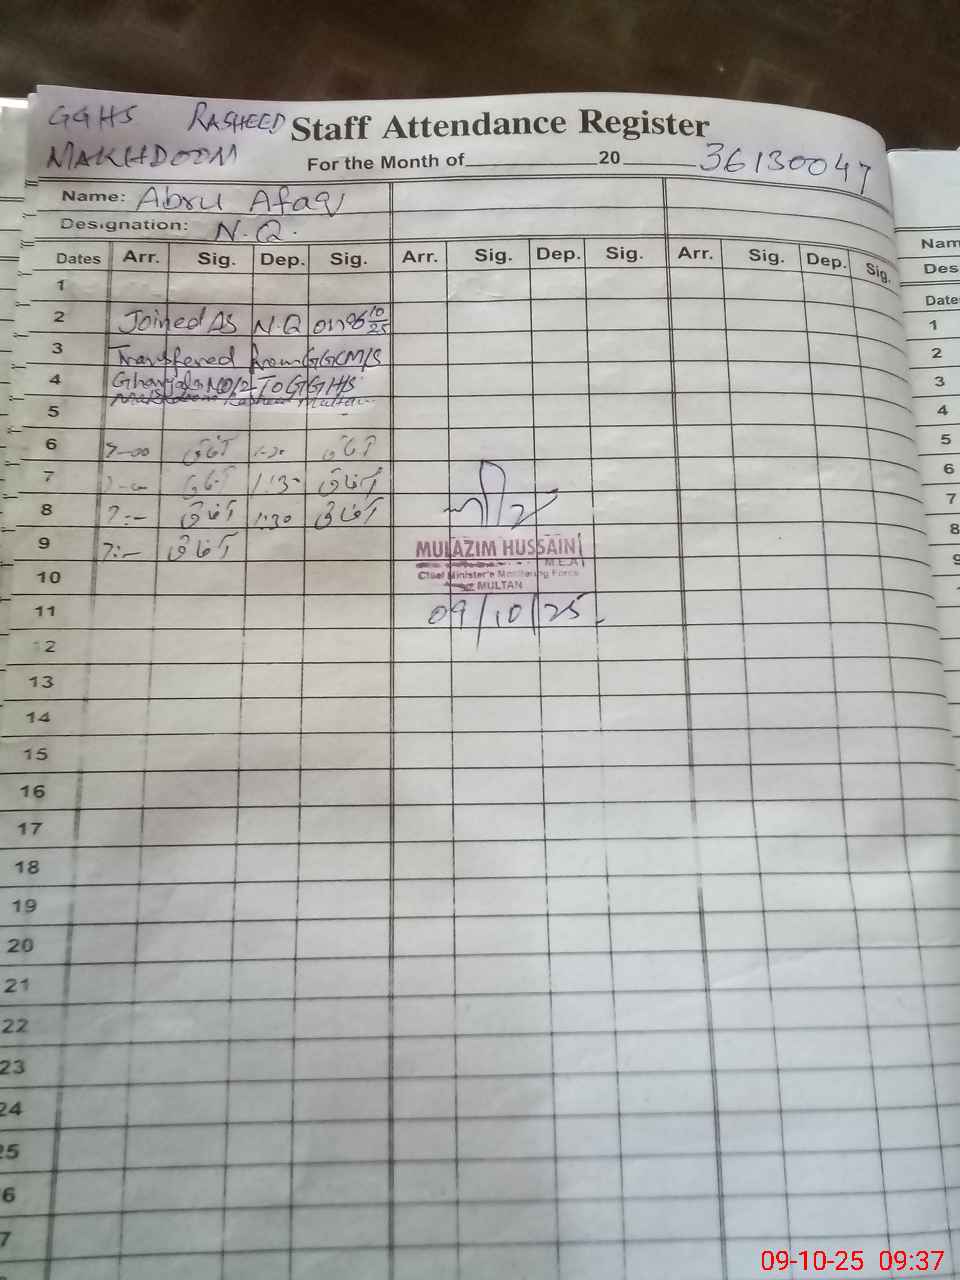 GGHS RASHEED Staff Attendance Register
MAKHDOOM For the Month of 20 36130047
Name: Abru Afaq
Designation: N.Q.
Dates Arr. Sig. Dep. Sig. Arr. Sig. Dep. Sig. Arr. Sig. Dep. Sig.
1
2 Joined As N.Q on 06/10/25
3 Transfered from GGCM/S
4 NO/2 TO GGH/S
5 Rasheed Multan
6 7-00 آفاق 1:30 آفاق
7 آفاق 1:30 آفاق
8 7:- آفاق 1:30 آفاق
9 7:- آفاق
MULAZIM HUSSAIN
M.E.A
Chief Minister's Monitoring Force
MULTAN
10
11 09/10/25
12
13
14
15
16
17
18
19
20
21
22
23
24
25
6
7
Nam
Des
Date
1
2
3
4
5
6
7
8
9
09-10-25 09:37